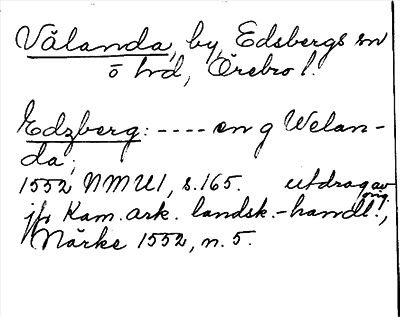 Vålanda, by, Edsbergs sn
o hd, Örebro l.
Edzberg: ---- en g Welan-
da;
1552 NMU1, s.165. utdrag av
orig.
jfr Kam. ark. landsk.-handl.,
Närke 1552, n. 5.